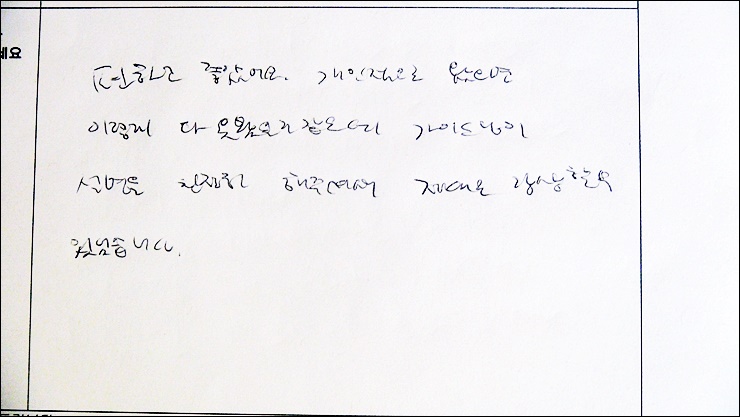 예요
편하고 좋았어요. 개인적으로 왔으면
이렇게 다 못봤을거 같은데 가이드님이
설명을 친절히 해주셔서 제대로 감상할수
있었습니다.